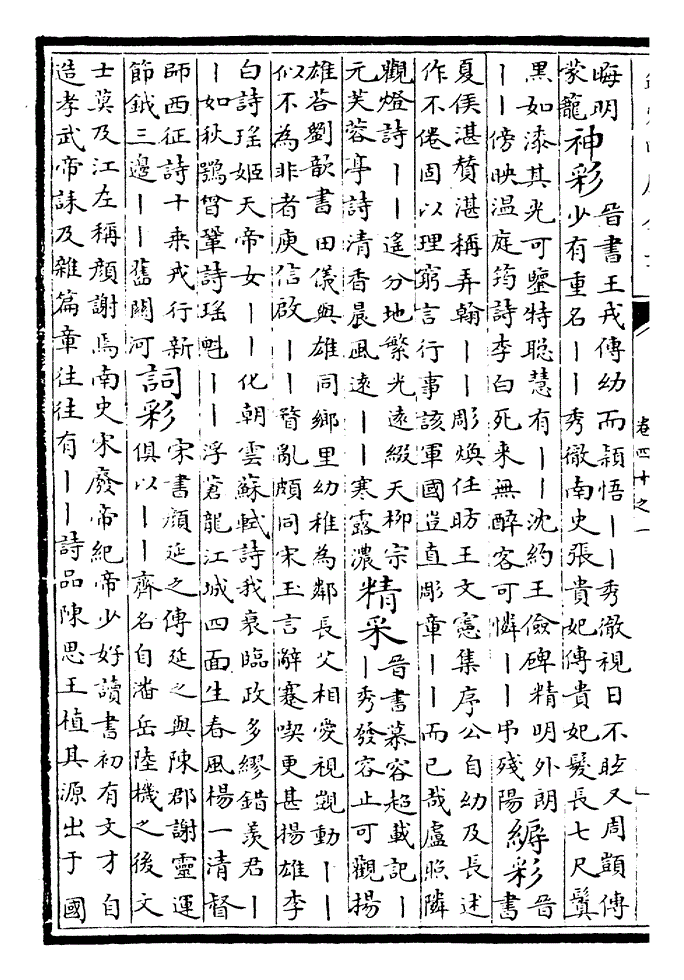 晦明
蒙籠
神彩
晉書王戎傳幼而頴悟丨丨秀徹視日不眩又周顗傳
少有重名丨丨秀徹南史張貴妃傳貴妃髮長七尺鬒
黑如漆其光可鑒特聰慧有丨丨沈約王儉碑精明外朗
丨丨傍映温庭筠詩李白死来無醉客可憐丨丨弔殘陽
縟彩
晉
書
夏侯湛賛湛稱弄翰丨丨彫煥任昉王文憲集序公自幼及長述
作不倦固以理窮言行事該軍國豈直彫章丨丨而已哉盧照隣
觀燈詩丨丨遥分地繁光遠綴天栁宗
元芙蓉亭詩清香晨風遠丨丨寒露濃
精采
晉書慕容超載記丨
丨秀發容止可觀揚
雄荅劉歆書田儀與雄同鄉里幼稚為鄰長父相愛視覬動丨丨
似不為非者庾信啟丨丨瞀亂頗同宋玉言辭蹇喫更甚揚雄李
白詩瑶姬天帝女丨丨化朝雲蘇軾詩我衰臨政多繆錯羡君丨
丨如秋鶚曾鞏詩瑶魁丨丨浮蒼龍江城四面生春風楊一清督
師西征詩十乗戎行新
節鉞三邊丨丨舊關河
詞彩
宋書顔延之傳延之與陳郡謝靈運
俱以丨丨齊名自潘岳陸機之後文
士莫及江左稱顔謝焉南史宋廢帝紀帝少好讀書初有文才自
造孝武帝誄及雜篇章往往有丨丨詩品陳思王植其源出于國
卷四十之一